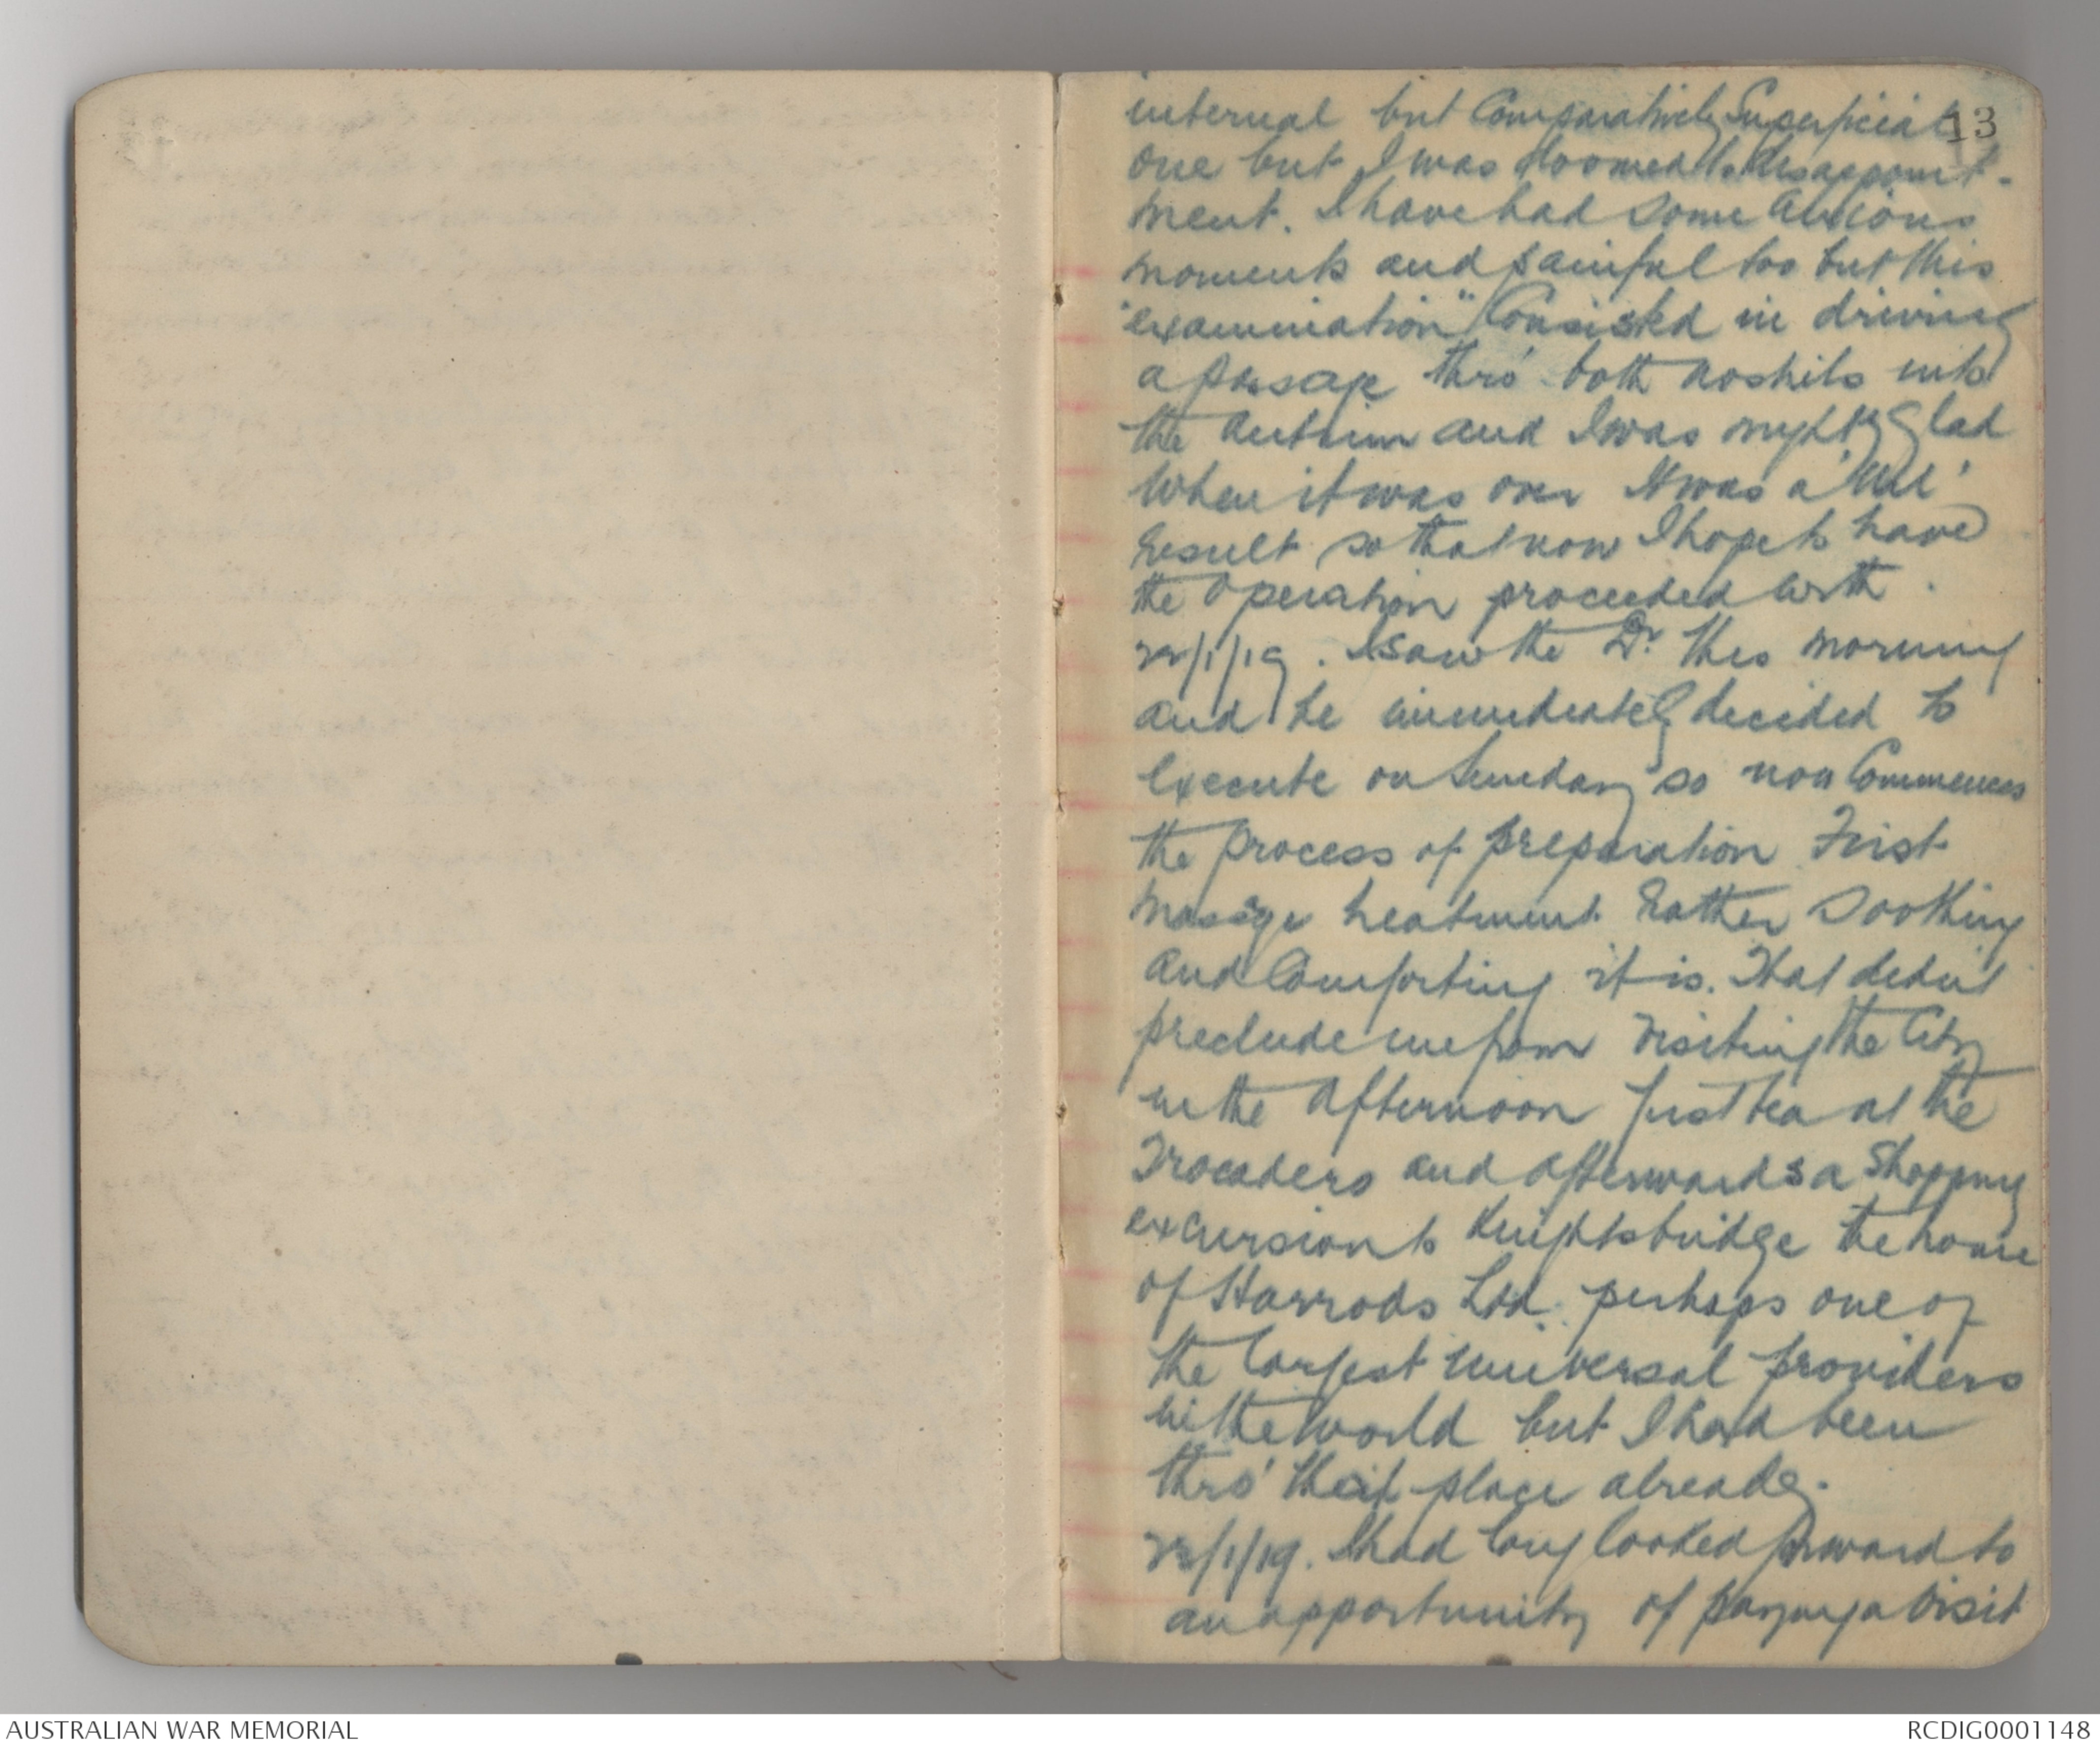 13
internal but Comparatively Superficial
one but I was doomed to disappoint-
ment. I have had some anxious
moments and painful too but this
"examination" Consisted in driving
a passage thro' both nostrils into
the Antrum and I was mighty glad
when it was over It was a 'Nil'
result so that now I hope to have
the Operation proceeded with.
22/1/19. I saw the Dr. this morning
and he immediately decided to
execute on Sunday so now Commences
the process of preparation First
massge treatment Rather soothing
and Comforting it is. That didn't
preclude me from visiting the City
in the Afternoon Just tea at the
Trocadero and afterwards a Shopping
excursion to Knightsbridge the home
of Harrods Ltd. perhaps one of
the largest universal providers
in the World but I had been
thro' that place already.
23/1/19. I had long looked forward to
an opportunity of paying a visit
AUSTRALIAN WAR MEMORIAL
RCDIG0001148